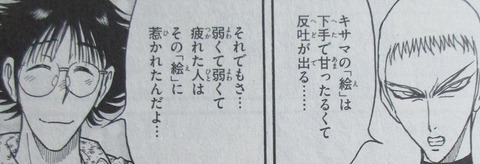 キサマの「絵」は
下手で甘ったるくて
反吐が出る……
それでもさ…
弱くて弱くて
疲れた人は
その「絵」に
惹かれたんだよ…